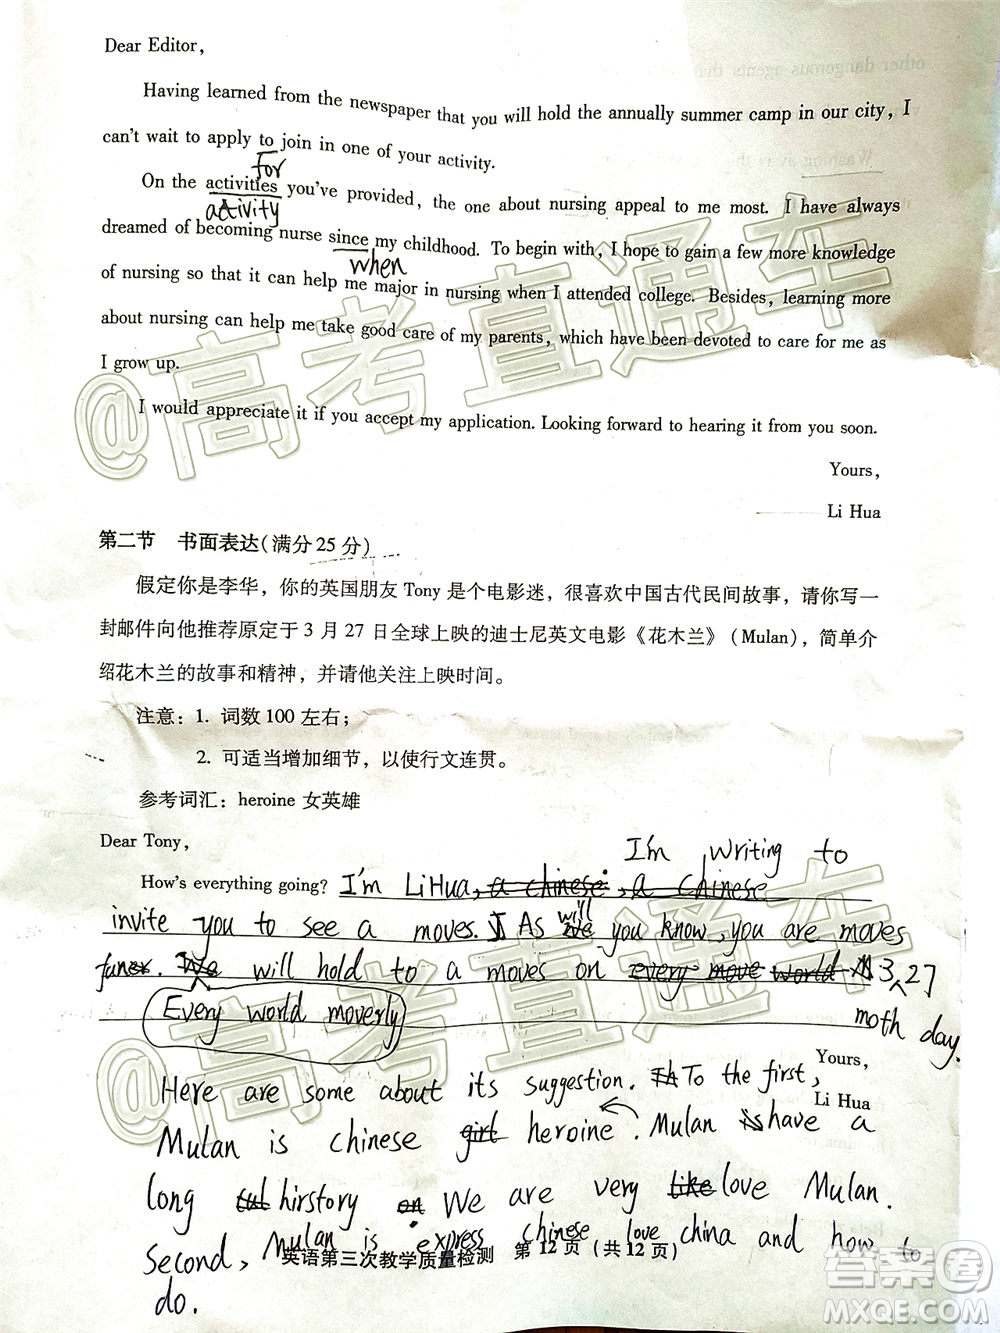 Dear Editor,
Having learned from the newspaper that you will hold the annually summer camp in our city, I
can't wait to apply to join in one of your activity.
for
On the activities you've provided, the one about nursing appeal to me most. I have always
activity
dreamed of becoming nurse since my childhood. To begin with, I hope to gain a few more knowledge
when
of nursing so that it can help me major in nursing when I attended college. Besides, learning more
about nursing can help me take good care of my parents, which have been devoted to care for me as
I grow up.
I would appreciate it if you accept my application. Looking forward to hearing it from you soon.
Yours,
Li Hua
第二节 书面表达(满分 25 分)
假定你是李华，你的英国朋友 Tony 是个电影迷，很喜欢中国古代民间故事，请你写一
封邮件向他推荐原定于 3 月 27 日全球上映的迪士尼英文电影《花木兰》(Mulan)，简单介
绍花木兰的故事和精神，并请他关注上映时间。
注意：1. 词数 100 左右；
2. 可适当增加细节，以使行文连贯。
参考词汇：heroine 女英雄
Dear Tony,
I'm writing to
How's everything going? I'm LiHua, a chinese, a Chinese
invite you to see a moves. As will you know, you are moves
We will hold to a moves on every move world 3, 27
moth day.
Every world moverly
Yours,
Li Hua
Here are some about its suggestion. To the first,
Mulan is chinese girl heroine. Mulan is have a
long hirstory on We are very like love Mulan.
Second, Mulan is express chinese love china and how to
do.
英语第三次教学质量检测 第 12 页 (共 12 页)
@高考直通车
@高考直通车
答案圈
MXQE.COM